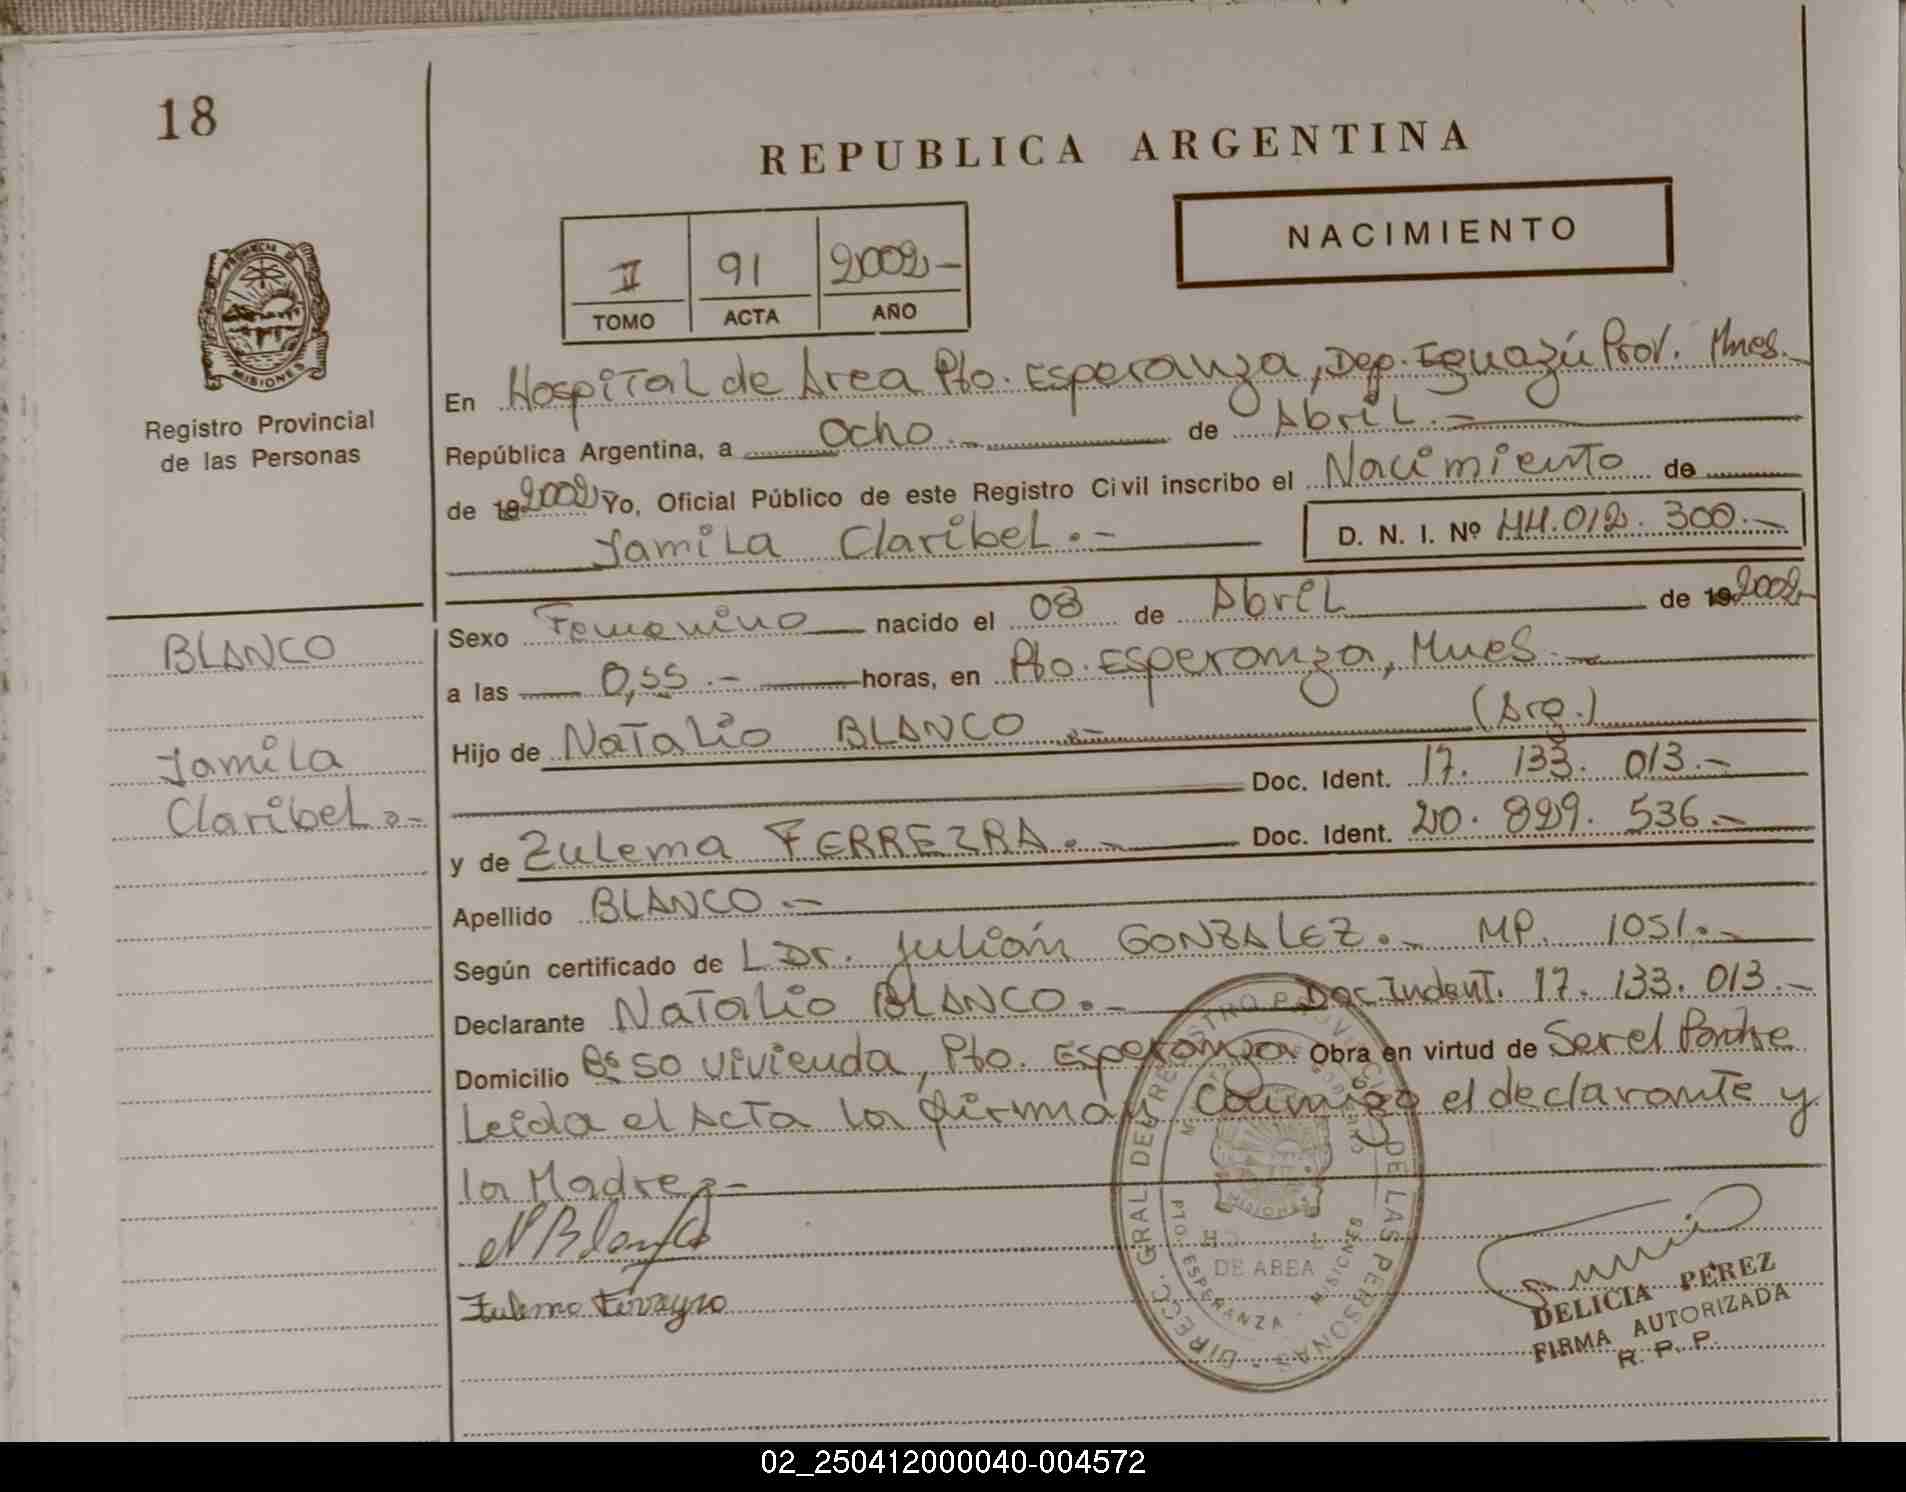 18
REPUBLICA ARGENTINA
NACIMIENTO
II 91 2002-
TOMO ACTA AÑO
PROVINCIA DE
MISIONES
Registro Provincial
de las Personas
En Hospital de Area Pto. Esperanza, Dep. Iguazú Prov. Mnes.-
República Argentina, a Ocho.- de Abril.-
de 19 2002 Yo, Oficial Público de este Registro Civil inscribo el Nacimiento de
Jamila Claribel.- D. N. I. Nº 44.012.300.-
Sexo Femenino nacido el 08 de Abril de 19 2002-
BLANCO
a las 0,55.- horas, en Pto. Esperanza, Mnes.-
Hijo de Natalio BLANCO.- (Arg.)
Jamila
Doc. Ident. 17.133.013.-
Claribel.-
y de Zulema FERREIRA.- Doc. Ident. 20.829.536.-
Apellido BLANCO.-
Según certificado de L Dr. Julián GONZALEZ.- MP. 1051.-
Declarante Natalio BLANCO.- Doc. Indent. 17.133.013.-
Domicilio Bº 50 vivienda, Pto. Esperanza Obra en virtud de Ser el Padre
Leida el Acta la firman conmigo el declarante y
la Madre.-
N Blanco
Zulema Ferreyra
DIRECC. GRAL. DEL REGISTRO PROVINCIAL DE LAS PERSONAS
MISIONES
DE AREA
PTO. ESPERANZA - MISIONES
DELICIA PEREZ
FIRMA AUTORIZADA
R. P. P.
02_250412000040-004572